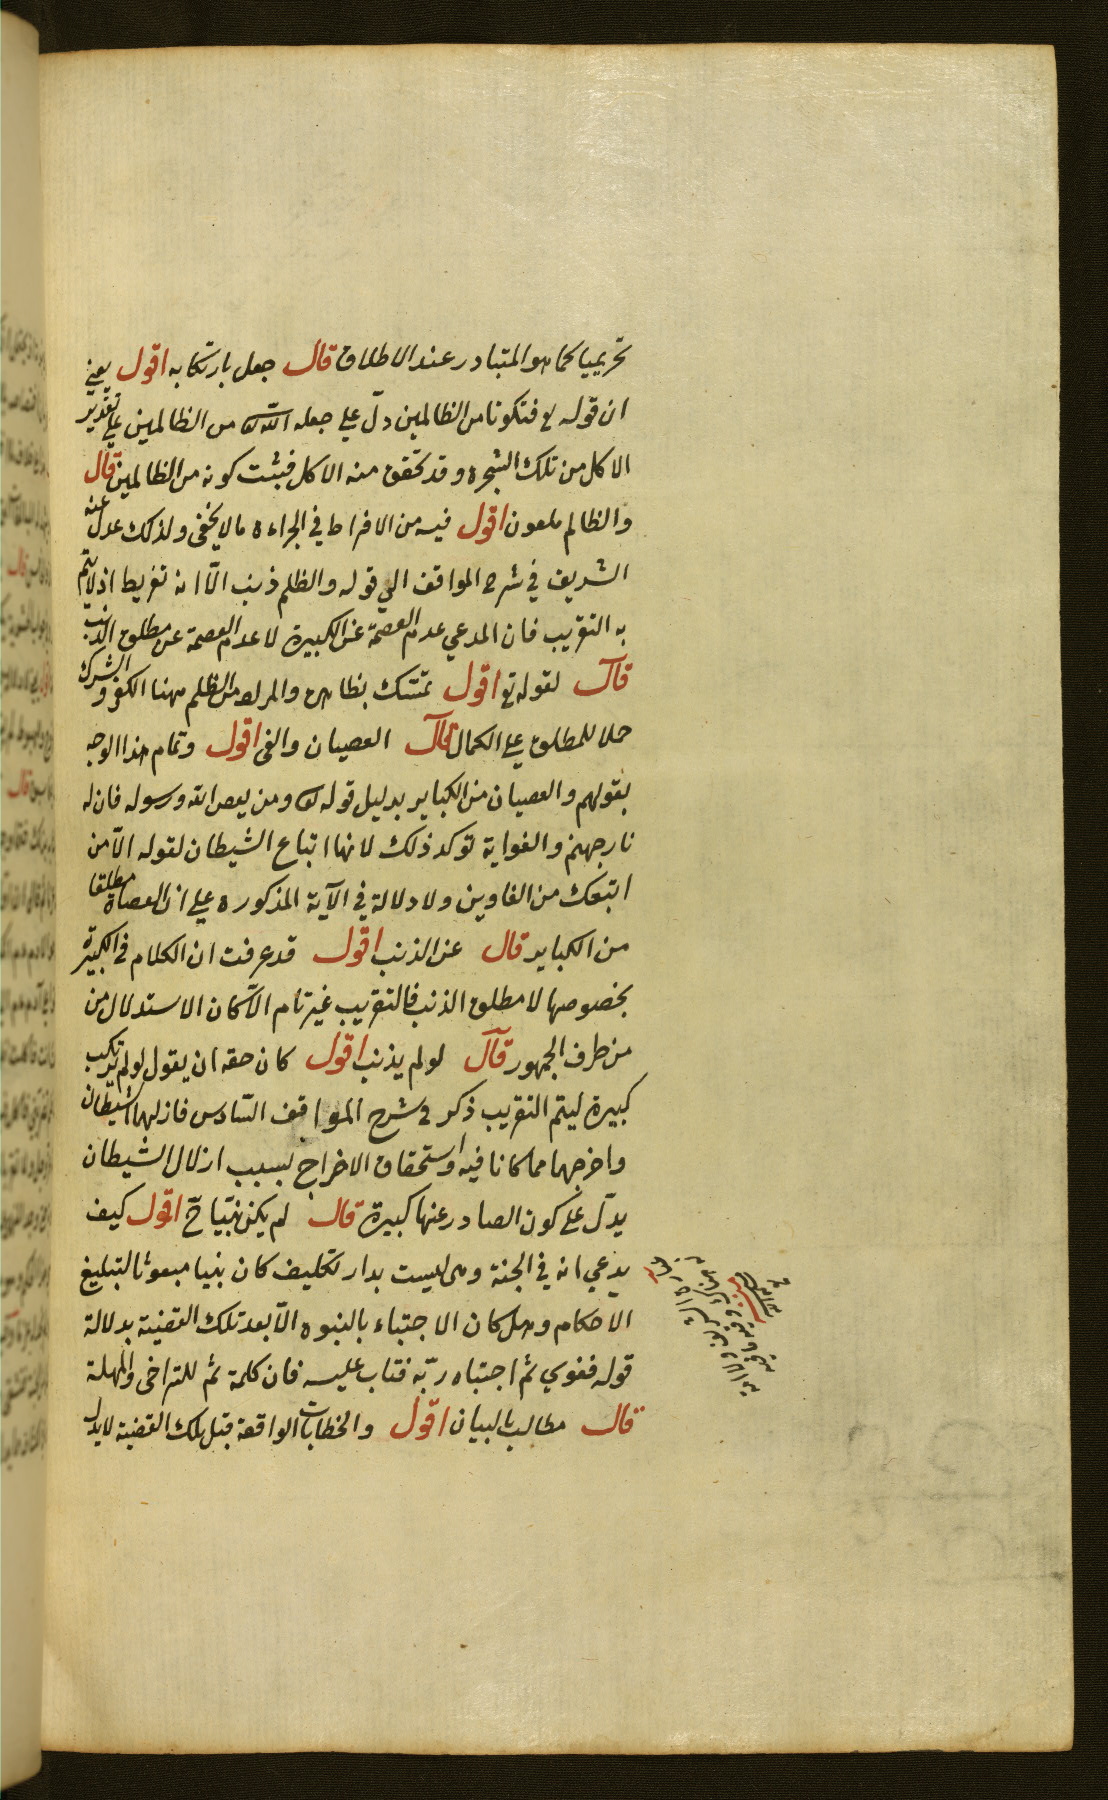 تحريميا كما هو المتبادر عند الاطلاق قال جعل بارتكابه اقول يعني
ان قوله تع فتكونا من الظالمين دلّ على جعله الله تع من الظالمين على تقدير
الاكل من تلك الشجرة وقد تحقق منه الاكل فيثبت كونه من الظالمين قال
والظالم ملعون اقول فيه من الافراط في الجراءة ما لا يخفى ولذلك عدل عنه
الشريف في شرح المواقف الى قوله والظلم ذنب الّا انه تفريط اذ لا يتم
به التقريب فان المدعي عدم العصمة عن الكبيرة لا عدم العصمة عن مطلق الذنب
قال لقوله تع اقول تمسّك بظاهره والمراد من الظلم ههنا الكفر والشرك
حملا للمطلق على الكمال قال العصيان والغى اقول وتمام هذا الوجه
بقولهم والعصيان من الكباير بدليل قوله تع ومن يعص الله ورسوله فان له
نار جهنم والغواية توكد ذلك لانها اتباع الشيطان لقوله الّا من
اتبعك من الغاوين ولا دلالة في الآية المذكورة على ان العصاة مطلقا
من الكباير قال عن الذنب اقول قد عرفت ان الكلام في الكبيرة
بخصوصها لا مطلق الذنب فالتقريب غير تام الّا كان الاستدلال من
من طرف الجمهور قال لو لم يذنب اقول كان حقه ان يقول لو لم يرتكب
كبيرة ليتم التقريب ذكر في شرح المواقف السّادس فازلهما الشيطان
واخرجهما مما كانا فيه واستحقاق الاخراج بسبب ازلال الشيطان
يدلّ على كون الصادر عنها كبيرة قال لم يكن نبيّا ح اقول كيف
يدعي انه في الجنة وهى ليست بدار تكليف كان نبيا مبعوثا لتبليغ
الاحكام وهل كان الاجتباء بالنبوة الّا بعد تلك القضية بدلالة
قوله فغوى ثم اجتباه ربّه فتاب عليه فان كلمة ثم للتراخى والمهلة
قال مطالب بالبيان اقول والخطابات الواقعة قبل تلك القضية لا يدل